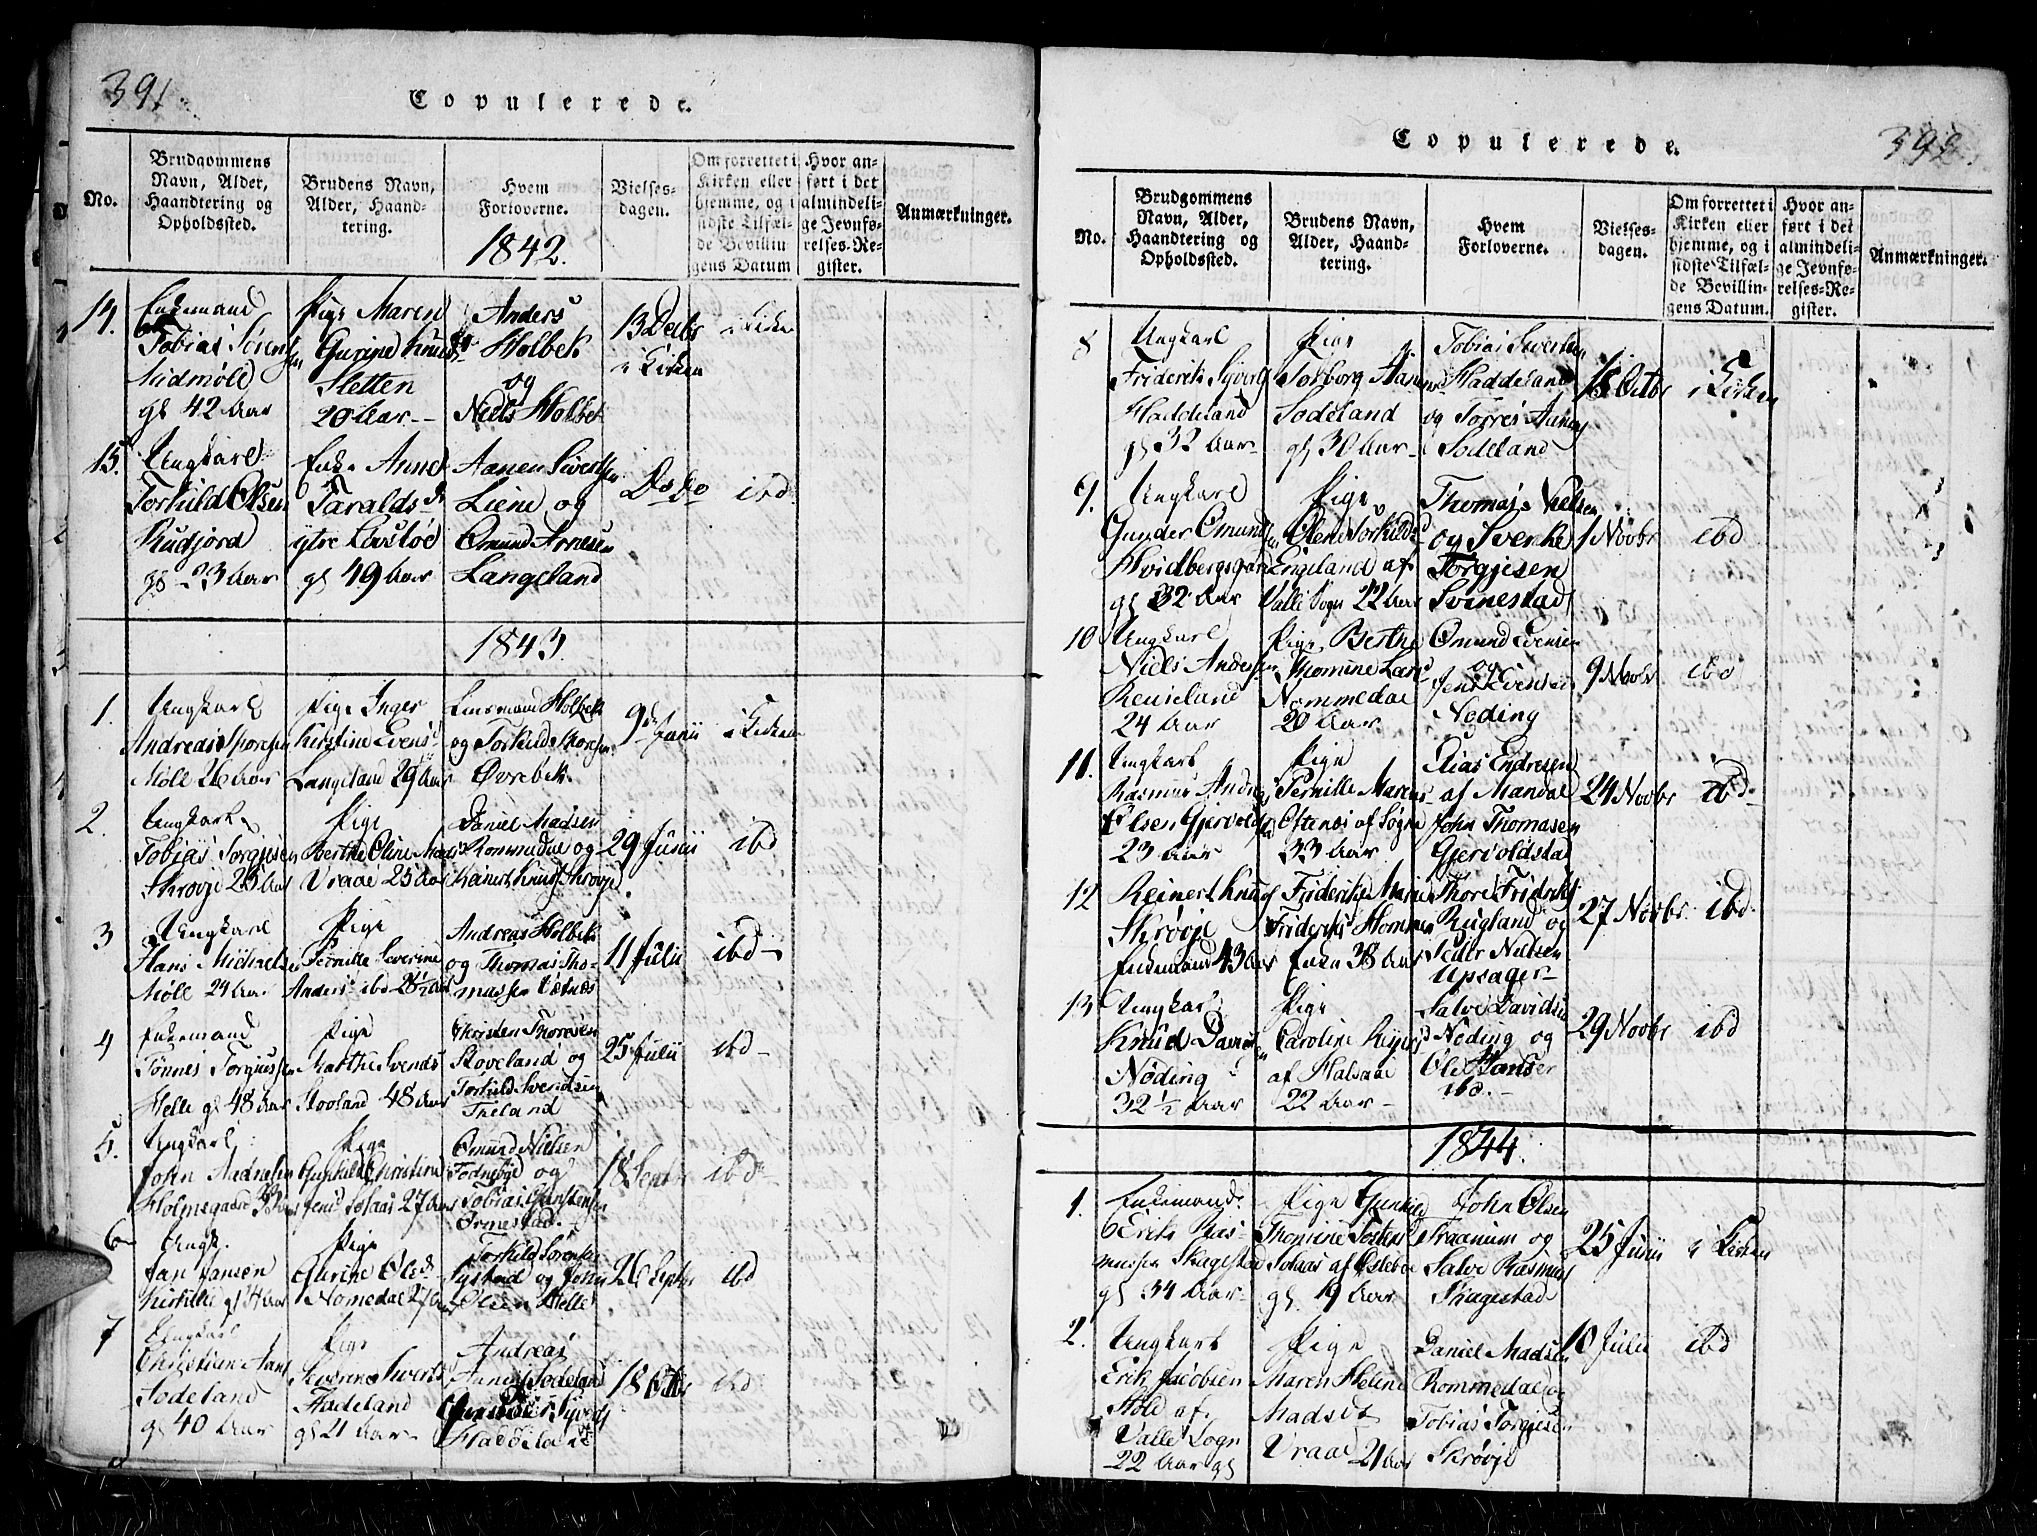 391.
Copulerede.
No.
Brudgommens
Navn, Alder,
Haandtering og
Opholdssted.
Brudens Navn,
Alder, Haand-
tering.
Hvem
Forloverne.
1842.
Vielses-
dagen.
Om forrettet i
Kirken eller
hjemme, og i
sidste Tilfæl-
de Bevillin
gens Datum
Hvor an-
ført i det
almindeli-
ge Jevnfø-
relses-Re-
gister.
Anmærkninger.
14.
Enkemand
Tobias Søren
sen
Midmøll
gl 42 Aar
Pige Maren
Gurine Knuds
Sletten
20 Aar
Anders
Holbek
og
Niels Holbek
13 Decbr
i Kirken
i Kirken
15.
Ungkarl
Torkild Olsen
Rudjord
gl 23 Aar
Enke Anne
Taralds d
ytre Løvsløe
gl 49 Aar
Aanen Sivert
sen
Liene og
Omund Arnesen
Langeland
Do Do
ibd
1843.
1.
Ungkarl
Andreas Thoresen
Møll 26 Aar
Pige Inger
Kirstine Evens d
Langeland 29 Aar
Linsmand Holbek
og Torkild Thoresen
Øvrebek
9 Junii
i Kirken
2.
Ungkarl
Tobias Torgjesen
Skrøvje 25 Aar
Pige
Berthe Oline Mads
Vraae 25 Aar
Daniel Madsen
Rommedal og
Reinert Knuds Skrøvje
29 Junii
ibd
3
Ungkarl
Hans Michaelsen
Møll 24 Aar
Pige
Pernille Severine
Anders d ibd 28½ Aar
Andreas Holbek
og Thomas Tho-
massen
11 Julii
ibd
4
Enkemand
Tønnes Torgiussen
Helle gl 48 Aar
Pige
Marthe Svends
48 Aar
Christen Thoresen
Stoveland og
Torkild Svendsen
25 Julii
ibd
5.
Ungkarl
John Andreasen
Holmegaard 33 Aar
Pige
Gunhild Christine
Jens d Solaas 27 Aar
Omund Nielsen
og
Tobias Gunstensen
18 Septr
ibd
6
Ungk.
Jan Jansen
gl 34 Aar
Pige
Gurine Ols d
Nomedal 27 Aar
Torkild Sørensen
Systad og John
Olsen Helle
26 Septbr
ibd
7
Ungkarl
Christien Aans
Sodeland
gl 40 Aar
Pige
Severine Siverts
Hadeland
gl 21 Aar
Andreas
Aanes Sodeland
Syverts
Haddeland
18 Octbr
ibd
392.
Copulerede.
No.
Brudgommens
Navn, Alder,
Haandtering og
Opholdssted.
Brudens Navn,
Alder, Haand-
tering.
Hvem
Forloverne.
Vielses-
dagen.
Om forrettet i
Kirken eller
hjemme, og i
sidste Tilfæl-
de Bevillin-
gens Datum.
Hvor an-
ført i det
almindeli-
ge Jevnfø-
relses-Re-
gister.
Anmærkninger.
8
Ungkarl
Friderik Syverts
Haddeland
gl 32 Aar
Pige
Torborg Aanens
Sodeland
gl 30 Aar
Tobias Sivertsen
Haddeland
og Torres Aanes
Sodeland
18 Octbr
i Kirken
9.
Ungkarl
Gunder Omund
sen
Hvidbergsgard
gl 32 Aar
Pige
Olene Torkilds
Engeland af
Valle Sogn 22 Aar
Thomas Nielsen
og Svenke
Torgjesen
Svinestad
1 Novbr
ibd
10
Ungkarl
Niels Andersen
24 Aar
Pige Berthe
Thomine Lars d
Nommedal
20 Aar
Omund Evensen
og
Jens Evensen
Noding
9 Novbr
ibd
11.
Ungkarl
Rasmus Andreas
Olsen Gjervoldstad
23 Aar
Pige
Pernille Marens
Oftenes af Sogne
33 Aar
Elias Endresen
af Mandal
John Thomasen
Gjervoldstad
24 Novbr
ibd
12
Reinert Knuds
Skrøvje
Enkemand 43 Aar
Friderike Marie
Frideriks Hommen
Enke 38 Aar
Thore Fridriks
Rugland og
Peder Nielsen
Upsager
27 Novbr
ibd
13
Ungkarl
Knud Davidsen
Nøding
32 ½ Aar
Pige
Caroline Reyers d
af Halsaae
22 Aar
Salve Davidsen
Noding og
Ole Hansen
ibd.
29 Novbr
ibd
1844.
1.
Enkemand
Erik Ras-
mussen Skagestad
gl 34 Aar
Pige Gunhild
Thomine Tostens
Solaas af Oslebøe
gl. 19 Aar
John Olsen
Straanum og
Salve Rasmus
Skagestad
25 Junii
i Kirken
2.
Ungkarl
Erik Jacobsen
Støle af
Valle Sogn
22 Aar gl
Pige
Maren Helene
Madsd
Vraae 21 Aar
Daniel Madsen
Rommedal og
Tobias Torgjesen
Skrøvje
10 Julii
ibd